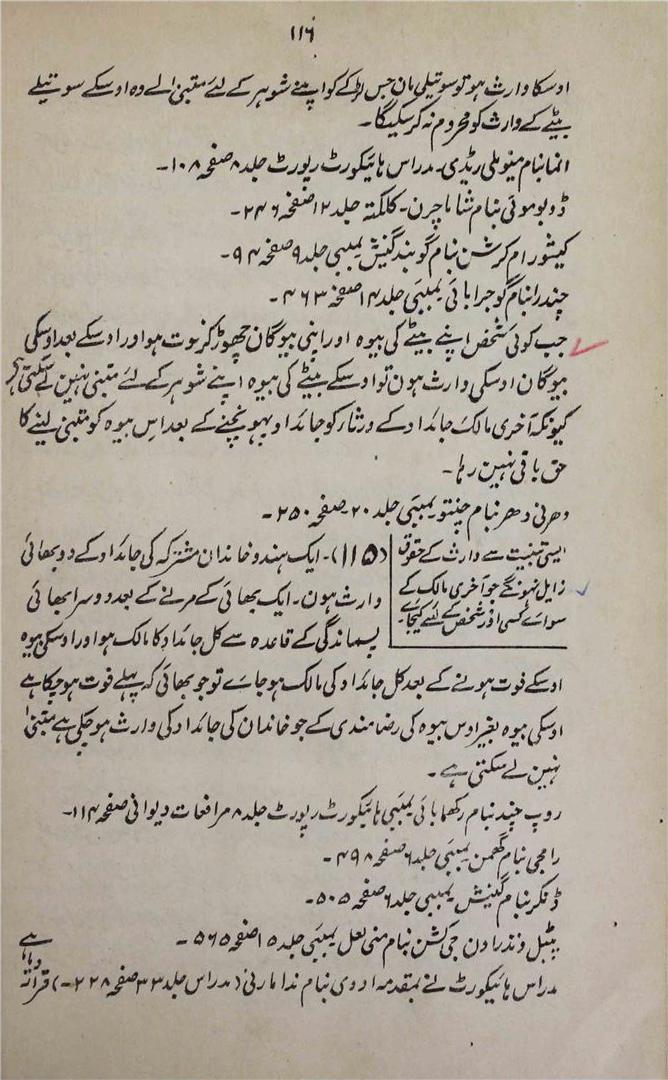 ١١٦
اوسکا وارث ہو تو سوتیلی مان جس لڑکے کو اپنے شوہر کے لئے متبنیٰ لے وہ اوسکے سوتیلے
بیٹے کے وارث کو محروم نہ کرسکیگا۔
انما بنام مینوملی ریڈی۔ مدراس ہائیکورٹ رپورٹ جلد ۸ صفحہ ۱۰۸۔
ڈوبوموئی بنام شاما چرن۔ کلکتہ جلد ۱۲ صفحہ ۲۴۶۔
کیشورام کرشن بنام گوبند گنیش بمبیی جلد ۹ صفحہ ۹۴۔
چندرا بنام گوجرا بائی بمبیی جلد ۱۴ صفحہ ۴۶۳۔
جب کوئی شخص اپنے بیٹے کی بیوہ اور اپنی بیوگان چھوڑ کر فوت ہو اور اوسکے بعد اوسکی
بیوگان اوسکی وارث ہون تو اوسکے بیٹے کی بیوہ اپنے شوہر کے لئے متبنیٰ نہین لے سکتی ہے
کیونکہ آخری مالک جائداد کے ورثار کو جائداد پہونچنے کے بعد اس بیوہ کو متبنیٰ لینے کا
حق باقی نہین رہا۔
دھرنی دھر بنام چنتو بمبیی جلد ۲۰ صفحہ ۲۵۰۔
ایسی تبنیت سے وارث کے حقوق
زایل نہونگے جو آخری مالک کے
سواے کسی اور شخص کے لئے کیجاے
(۱۱۵)۔ ایک ہندو خاندان مشترکہ کی جائداد کے دو بھائی
وارث ہون۔ ایک بھائی کے مرنے کے بعد دوسرا بھائی
پسماندگی کے قاعدہ سے کل جائداد کا مالک ہو اور اوسکی بیوہ
اوسکے فوت ہونے کے بعد کل جائداد کی مالک ہو جاے تو جو بھائی کہ پہلے فوت ہو چکا ہے
اوسکی بیوہ بغیر اوس بیوہ کی رضامندی کے جو خاندان کی جائداد کی وارث ہو چکی ہے متبنیٰ
نہین لے سکتی ہے۔
روپ چند بنام رکھما بائی بمبیی ہائیکورٹ رپورٹ جلد ۸ مرافعات دیوانی صفحہ ۱۱۴۔
رامجی بنام گھمن بمبیی جلد ۶ صفحہ ۴۹۸۔
ڈنکر بنام گنیش بمبیی جلد ۶ صفحہ ۵۰۵۔
پٹیل وندرا ون جی کشن بنام منی لعل بمبیی جلد ۱۵ صفحہ ۵۶۵۔
مدراس ہائیکورٹ نے بمقدمہ ادوی بنام ندامارنی (مدراس جلد ۳۳ صفحہ ۲۲۸۔) قرار دیا ہے